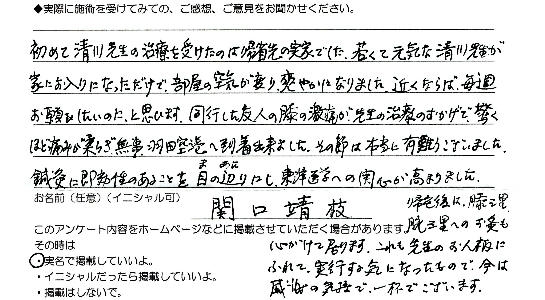 ◆実際に施術を受けてみての、ご感想、ご意見をお聞かせください。
初めて清川先生の治療を受けたのは帰省先の実家でした。若くて元気な清川先生が
家にお入りになっただけで、部屋の空気が変り、爽やかになりました。近くならば、毎週
お願いしたいのに、と思います。同行した友人の膝の激痛が先生の治療のおかげで、驚く
ほど痛みが柔らぎ無事、羽田空港へ到着出来ました。その節は本当に有難うございました。
鍼灸に即効性のあることを目の辺りにし、東洋医学への関心が高まりました。
ま あた
お名前（任意）（イニシャル可）
関口靖枝
このアンケート内容をホームページなどに掲載させていただく場合があります。
その時は
・実名で掲載していいよ。
・イニシャルだったら掲載していいよ。
・掲載はしないで。
帰省後は、膝三里
腕三里へのお灸も
心がけて居ります。これも先生のお人柄に
ふれて、実行する気になったもので、今は
感謝の気持で一杯でございます。